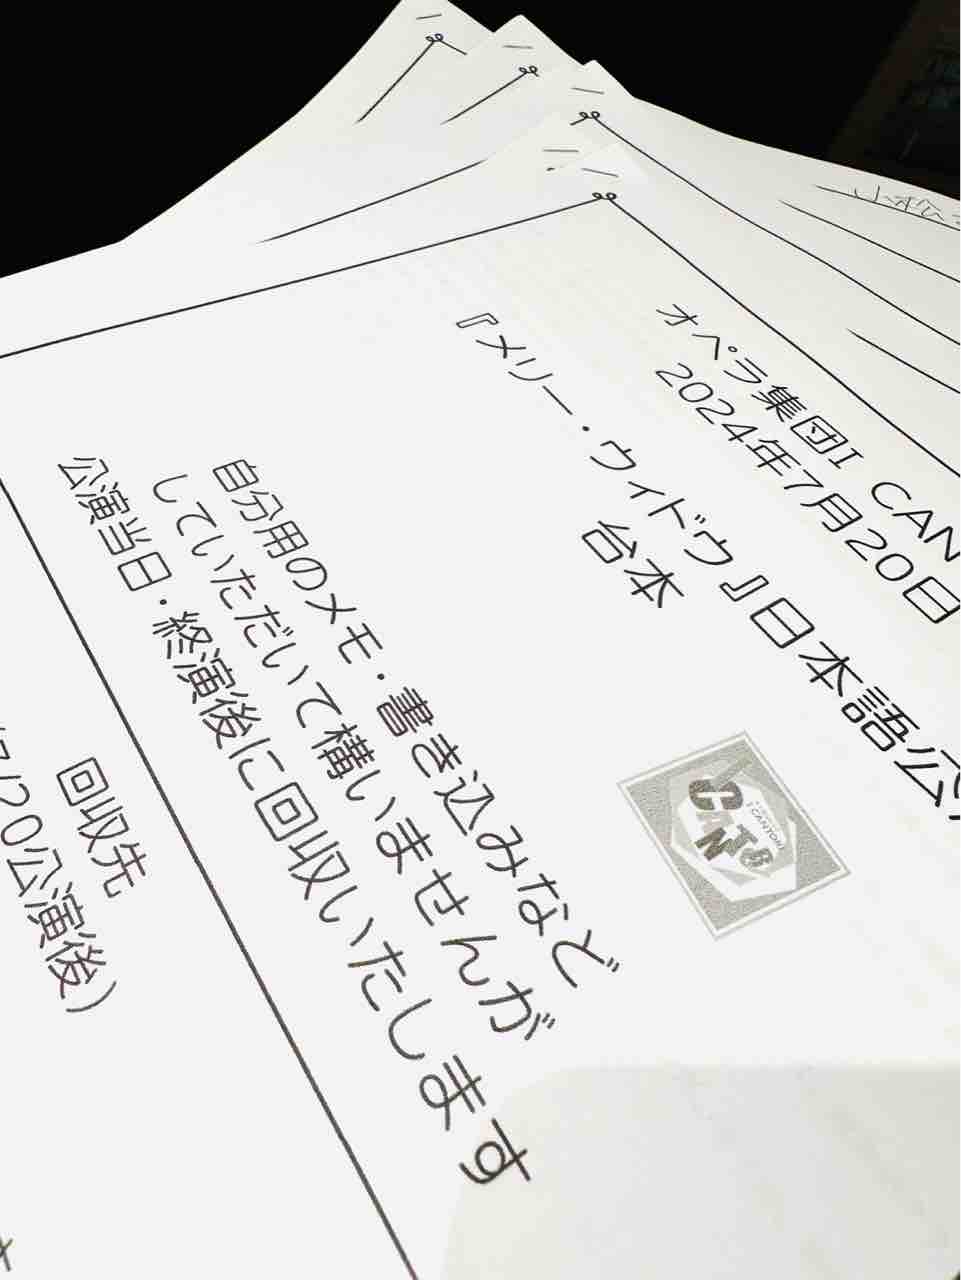 オペラ集団I CAN
2024年7月20日
『メリー・ウィドウ』日本語公
台本
I CANTORI
自分用のメモ・書き込みなど
していただいて構いませんが
公演当日・終演後に回収いたします
回収先
/20公演後)
小松